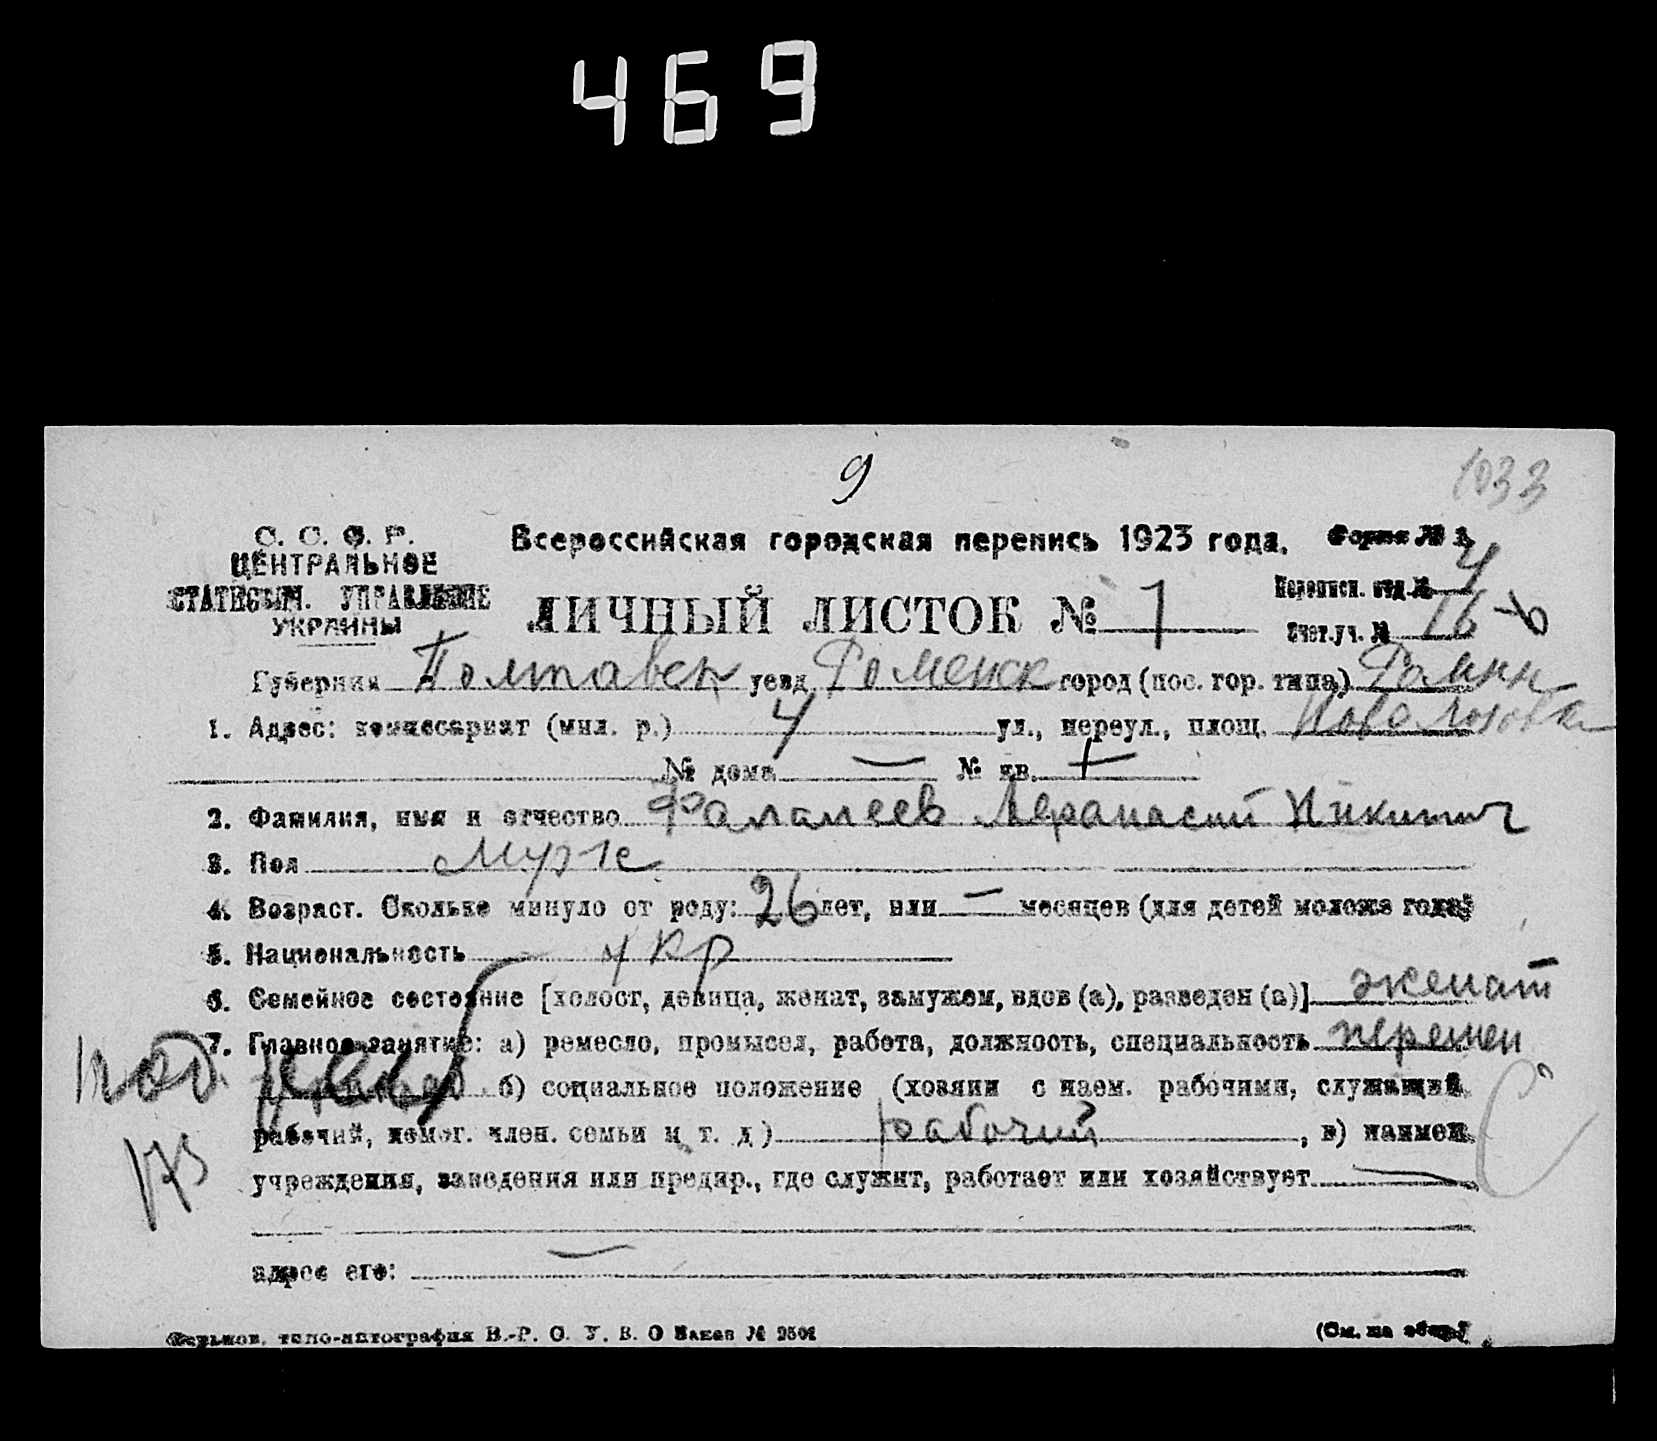 469
9
1033
С. С. С. Р.
ЦЕНТРАЛЬНОЕ
СТАТИСТИЧ. УПРАВЛЕНИЕ
УКРАИНЫ
Всероссийская городская перепись 1923 года.
Форма № 1.
ЛИЧНЫЙ ЛИСТОК № 1
Переписн. отд. № 4
Счет. уч. № 16-б
Губерния Полтавск уезд Роменск город (пос. гор. типа) Ромны
1. Адрес: комиссариат (мил. р.) 4 ул., переул., площ.
№ дома — № кв.
2. Фамилия, имя и отчество Фалалеев Афанасий Никитич
3. Пол Муж
4. Возраст. Сколько минуло от роду: 26 лет, или — месяцев (для детей моложе года)
5. Национальность укр
6. Семейное состояние [холост, девица, женат, замужем, вдов (а), разведен (а)] женат
7. Главное занятие: а) ремесло, промысел, работа, должность, специальность
под б) социальное положение (хозяин с наем. рабочими, служащий,
рабочий, помог. член. семьи и т. д) рабочий, в) наимен.
173
учреждения, заведения или предпр., где служит, работает или хозяйствует —
адрес его: —
Харьков. типо-литография В.-Р. О. У. В. О Заказ № 2501
(См. на обор.)